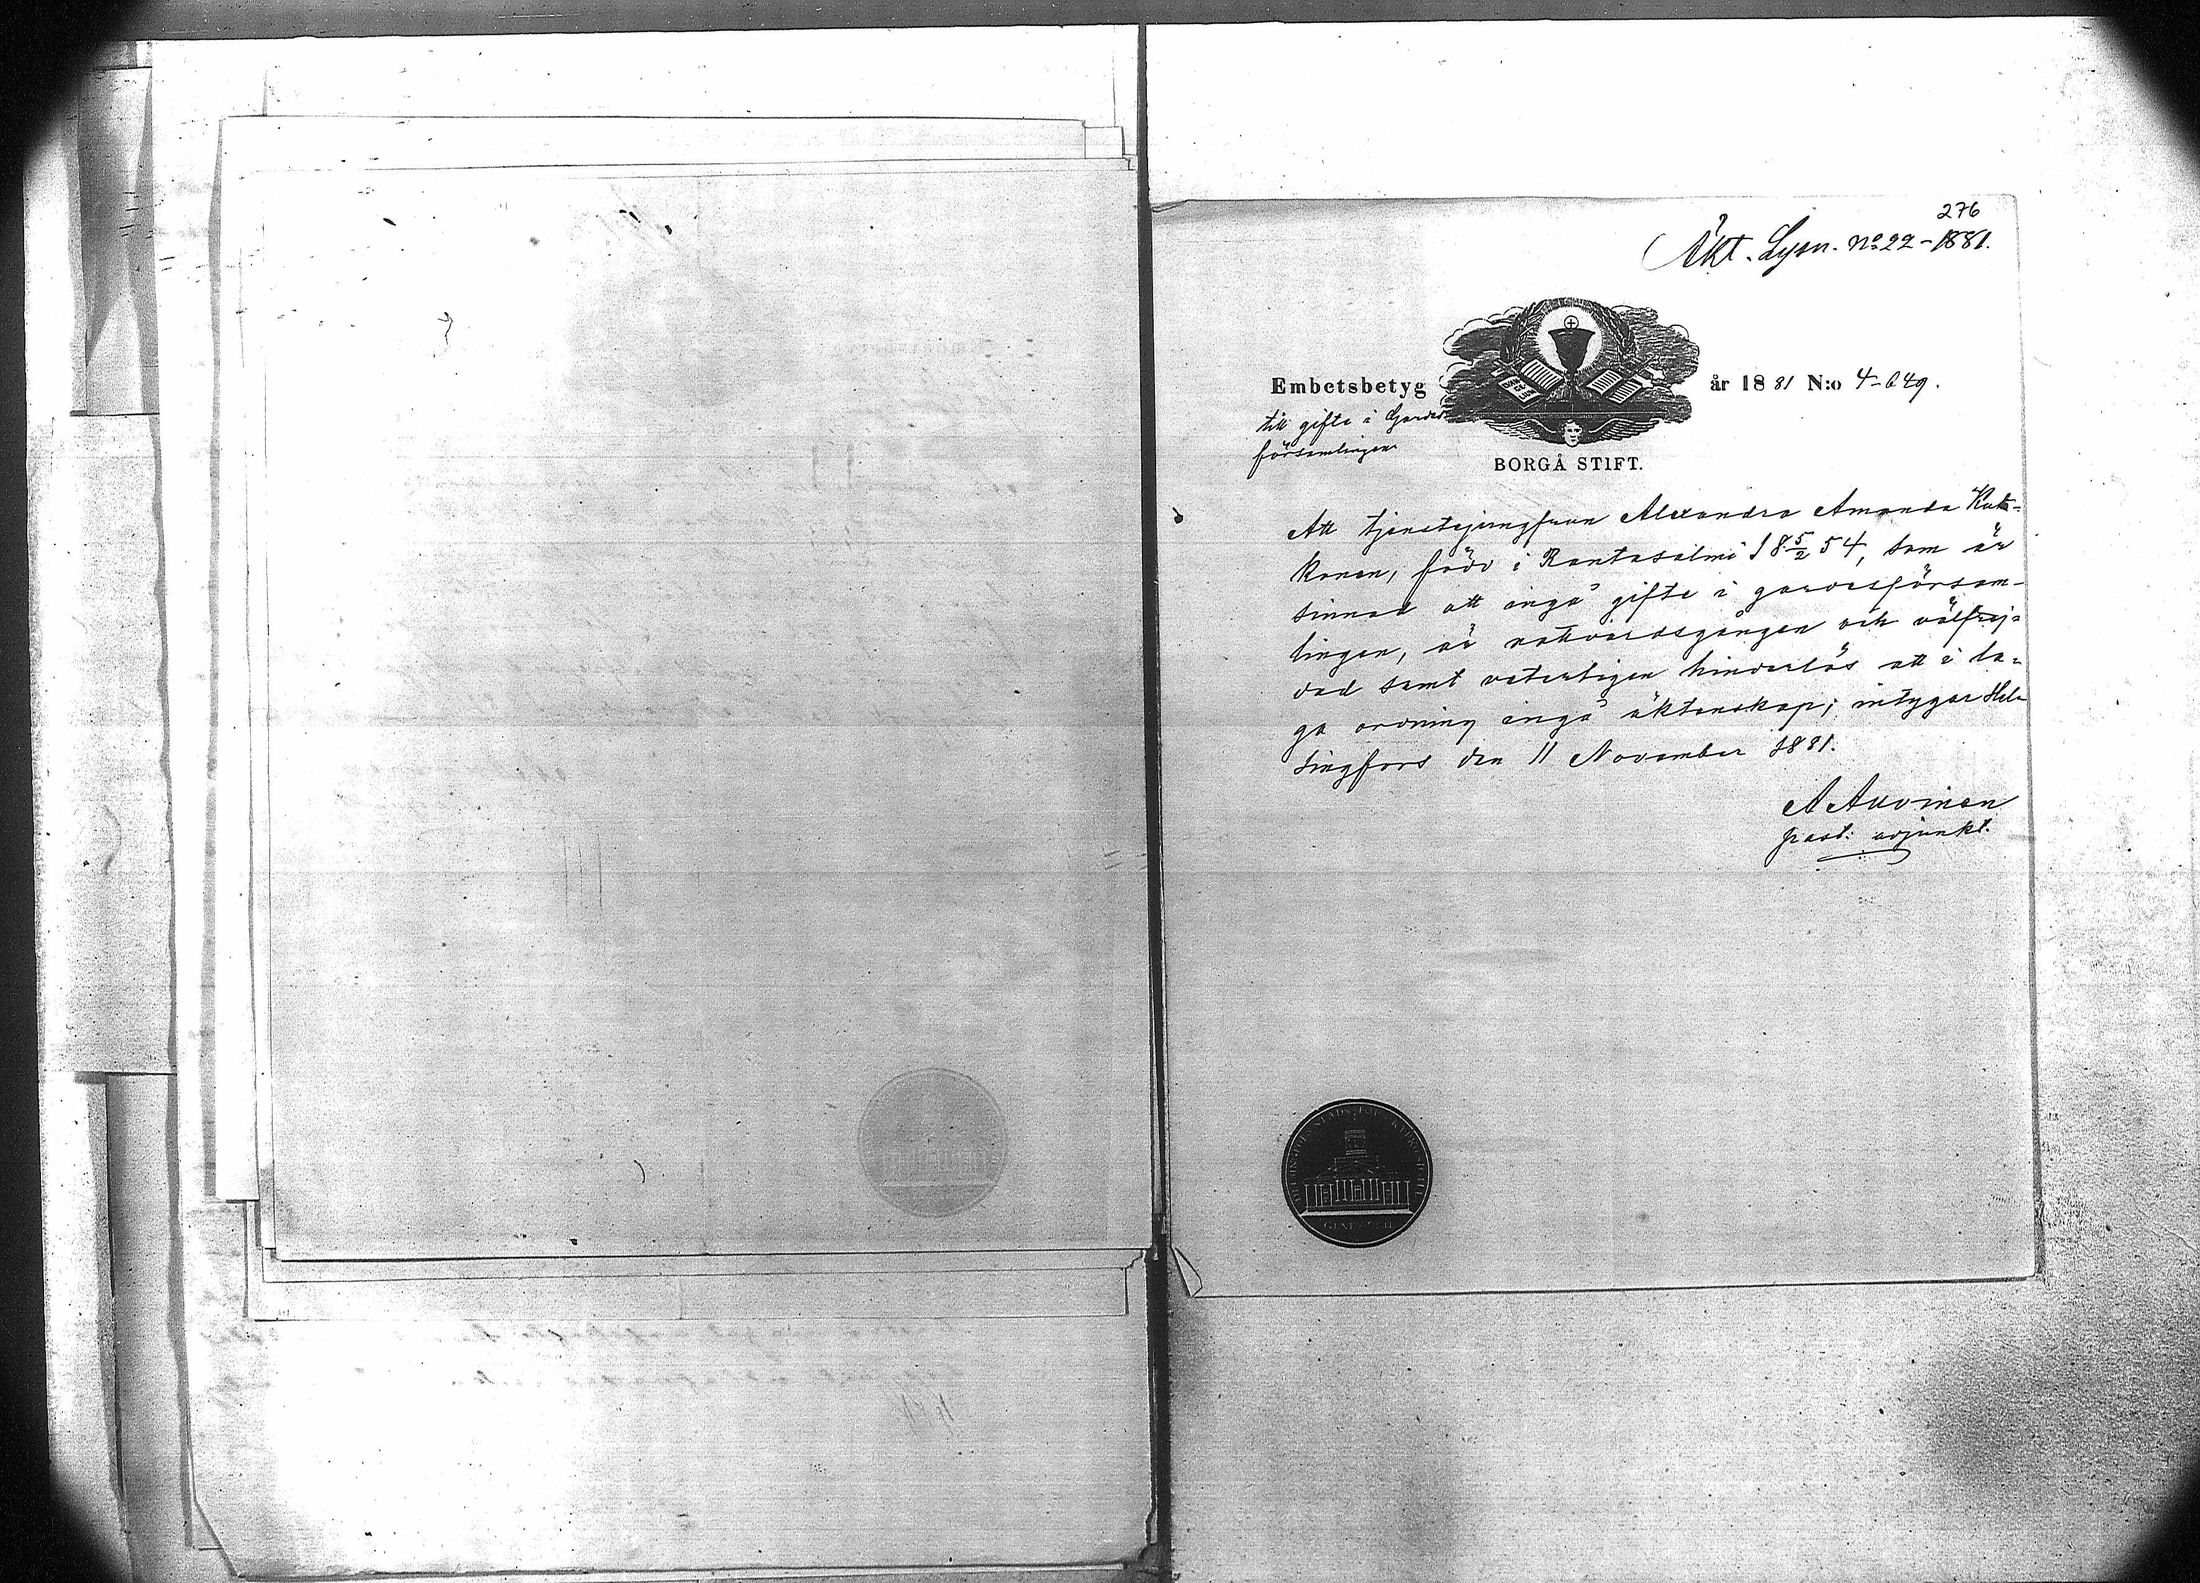 276
Äkt. Lysn. No 22 - 1881.
Embetsbetyg år 1881 N:o 4-649.
till gifte i Gardes
församlingen
BORGÅ STIFT.
Att tjenstejungfrun Alexandra Amanda Kok-
konen, född i Rantasalmi 18 5/2 54, som är
sinnad att ingå gifte i gardesförsam-
lingen, är nattvardsgången och välfrej-
dad samt veterligen hinderlös att i la-
ga ordning ingå äktenskap; intygar Hel-
singfors den 11 November 1881.
A Auvinen
past. adjunkt.